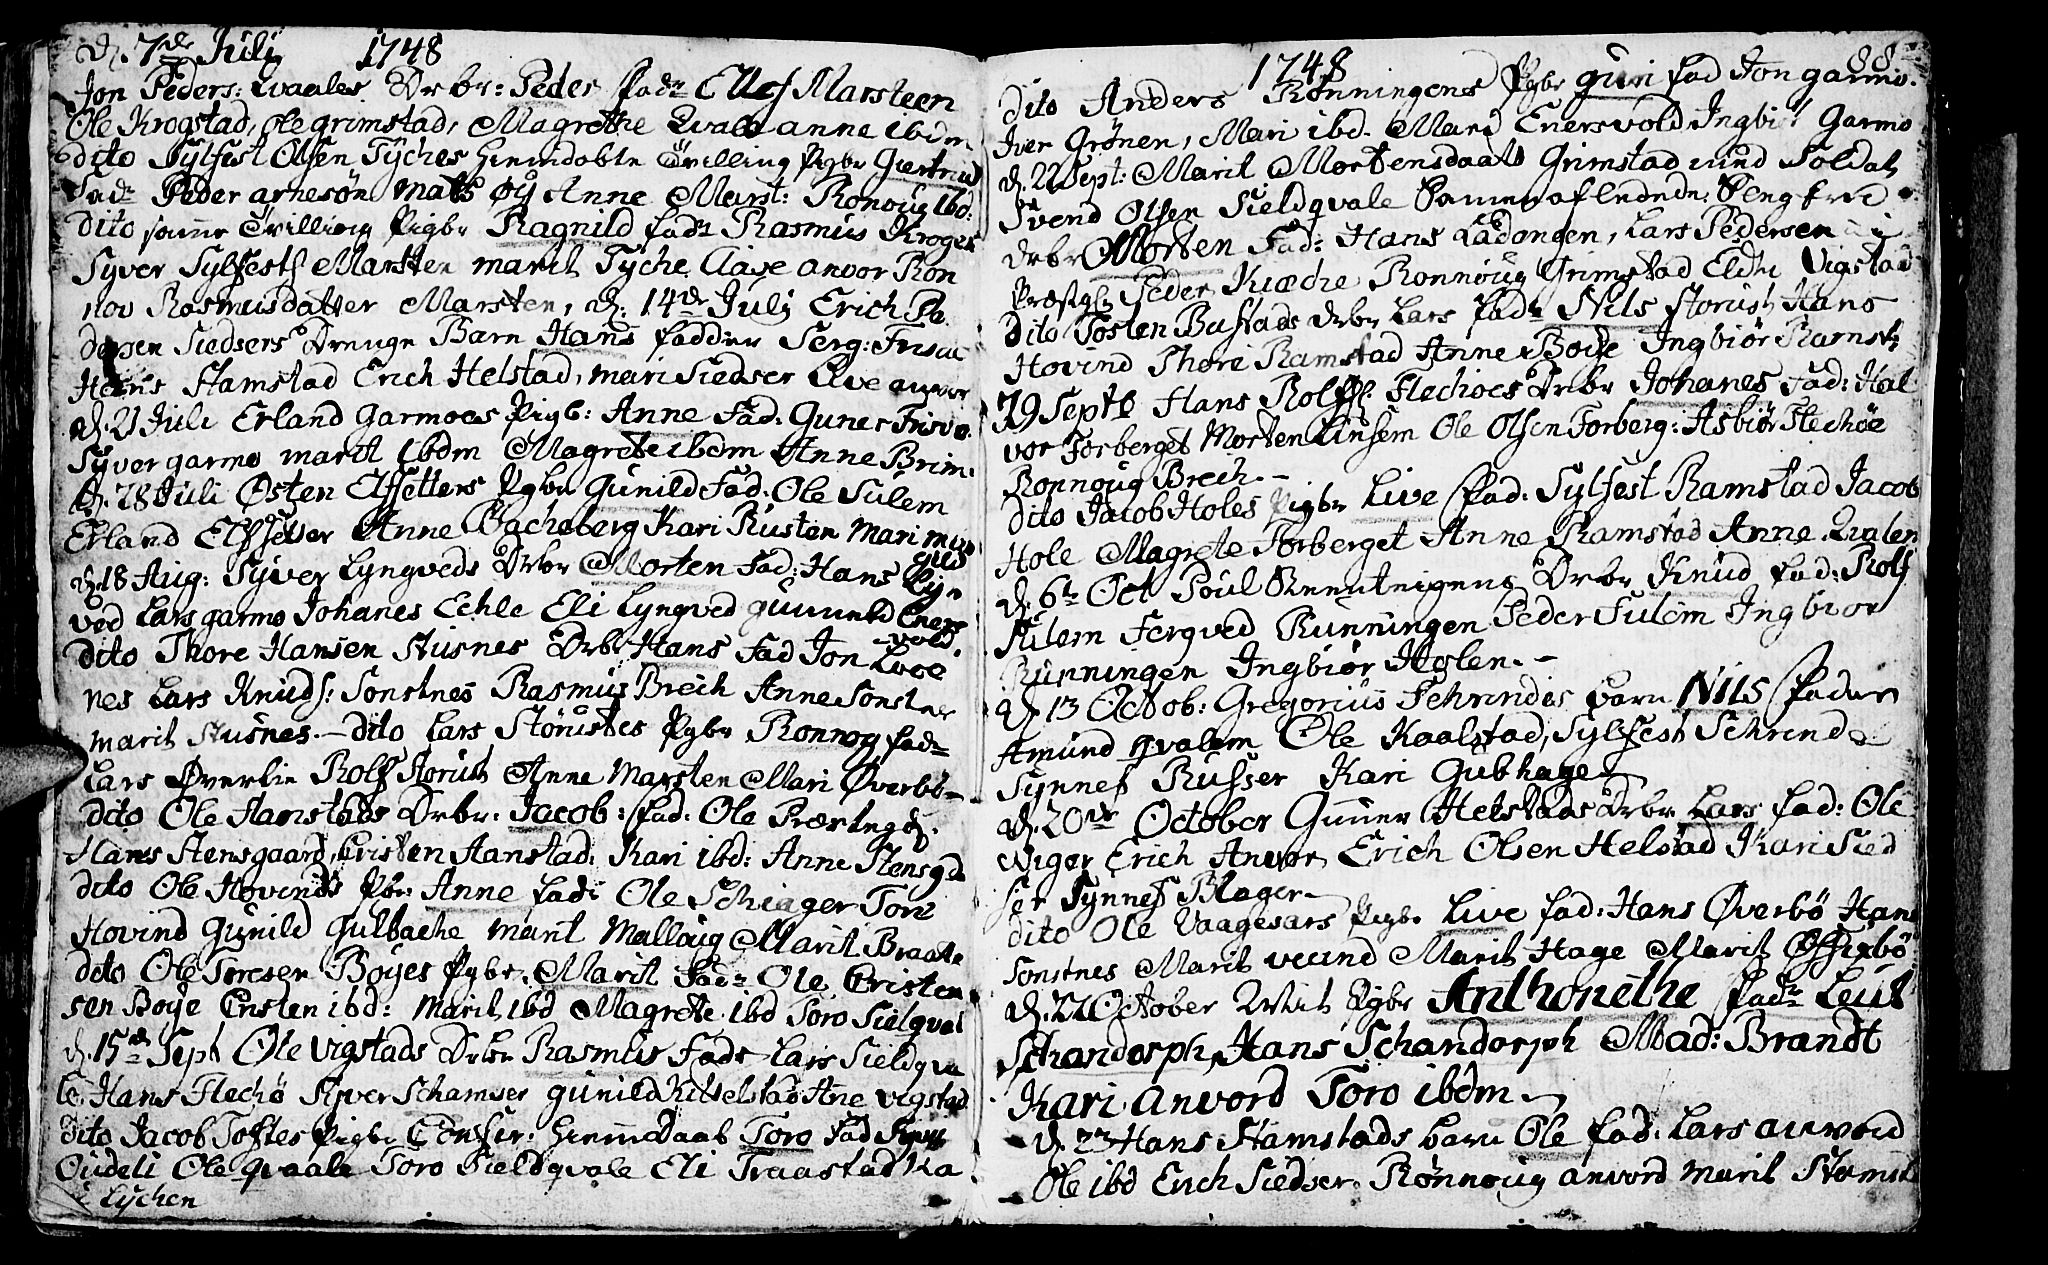 d. 7de Julij 1748
Jon Peders: Qvaales Drbr: Peder fadr Ellef Marsteen
Ole Krogstad, Ole grimstad, Magrethe Qvale anne ibdm
dito Sylfest Olsen Tyches hiemdøbte Tvilling Pigbr Giertrud
Fadr Peder arnesøn Mats Øy Anne Marst: Ronoug ibd:
dito samme Tvilling Pigbr Ragnild fadr Rasmus Kroges
Syver Sylfests Marsten marit Tyche Aase anvor Ron
nov Rasmusdatter Marsten, d. 14de Julij Erich Pe
dersen Siedsers Drenge Barn Hans fadder Serg: Friis
Hans Stamstad Erich Helstad, mari Siedser Live anvor
d. 21 Juli Erland Garmoes Pigb: Anne Fad: Guner Frisvo.
Syver garmo marit ibdm Magrete ibdm Anne Brim.
d. 28 Juli Østen Elfsetters Pigbr Gunild Fad: Ole Sulem
Erland Elfsetter Anne Bacheberg Kari Rusten Mari
d. 18 Aug: Syver Lyngveds Drbr Morten Fad: Hans Lyn
ved Lars garmo Johanes Echle Eli Lyngved gunnild Eners
vold.
dito Thore Hansen Stusnes Drbr Hans Fad Jon Loee
nes Lars Knuds: Sonstnes Rasmus Brech Anne Sonstnes
marit Stusnes.- dito Lars Störustes Pigbr Ronnog fadr
Lars Øverlie Rolf Storust Anne Marsten Mari Øverbö
dito Ole Aamstads Drbr: Jacob: fad: Ole Præstegd.
Hans Stensgaard, Cristen Aanstad: Kari ibd: Anne Stensgd
dito Ole Hovinds Pbr: Anne fad: Ole Schiager Tore
Hovind Gunild Gulbache marit Mallaug Marit Braate
dito Ole Toresen Böyes Pgbr. Marit Fadr Ole Cristen
sen Boye Cristen ibd: Marit ibd Magrete ibd Toro Sielqval
d. 15de Sept Ole Vigstads Drbr Rasmus Fadr Lars Sieldqva
le Hans Flechö Syver Schamser gunild Kittelstad Ane Vigstad
dito Jacob Toftes Pigbr Confir: hiemdaab Toro Fad
Oudeli Ole qvaale Toro Sieldqvale Eli Traastad Ka
Lychen
1748 88
dito Anders Rønningens Pgbr guri fad Jon garmo.
Iver Grönen, Mari ibd. Mari Enersvold Ingbiør Garmo
d. 22 Sept: Marit Mortensdaatr Grimstad und Soldat
Svend Olsen Sieldqvale Sammenaflede Seng
drbr Morten Fad: Hans Ladangen, Lars Pedersen
Præstg: Peder Kuæche Ronnoug Grimstad Eldri Vigstad
dito Tosten Bustads drbr Lars fadr Nils Storust Hans
Hovind Thore Ramstad Anne Boye Ingbiør Ramst:
29 Septb Hans Rolfs: Flechoes Drbr Johanes Fad: Hal
vor Forberget Morten Linsem Ole Olsen Forberg: Asbiør Flechöe
Ronnoug Brech.-
dito Jacob Holes Pigbr Live fad: Sylfest Ramstad Jacob
Hole Magrete Forberget Anne Ramstad Anne Qvalen
d. 6te Oct Poul Drbr Knud fad: Rolf
Sulem Fergved Runningen Peder Sulem Ingbior
Runningen Ingbiør Holen.-
d. 13 Octob: Gregorius Schrindes barn Nils fader
Amund qvalem Ole Kaalstad, Sylfest Schrinde
Synnef Russer Kari Gubhage
d. 20de October Guner Helstads Drbr Lars fad: Ole
Wiger Erich Anvor Erich Olsen Helstad Kari Sied
ser Synnef Blager
dito Ole Vaagesars Pigbr Live fad: Hans Øverbö Hans
Sonstnes Marit veund Marit Hage Marit Offigsbö
d. 22 October Pigbr Anthonethe fadr Leut
Schandorph, Hans Schandorph Mad: Brandt
Kari anvord Toro ibdm
d. Hans Stamstads barn Ole fad: Lars anvord
Ole ibd Erich Siedser Rønnoug anvord Marit Stamst